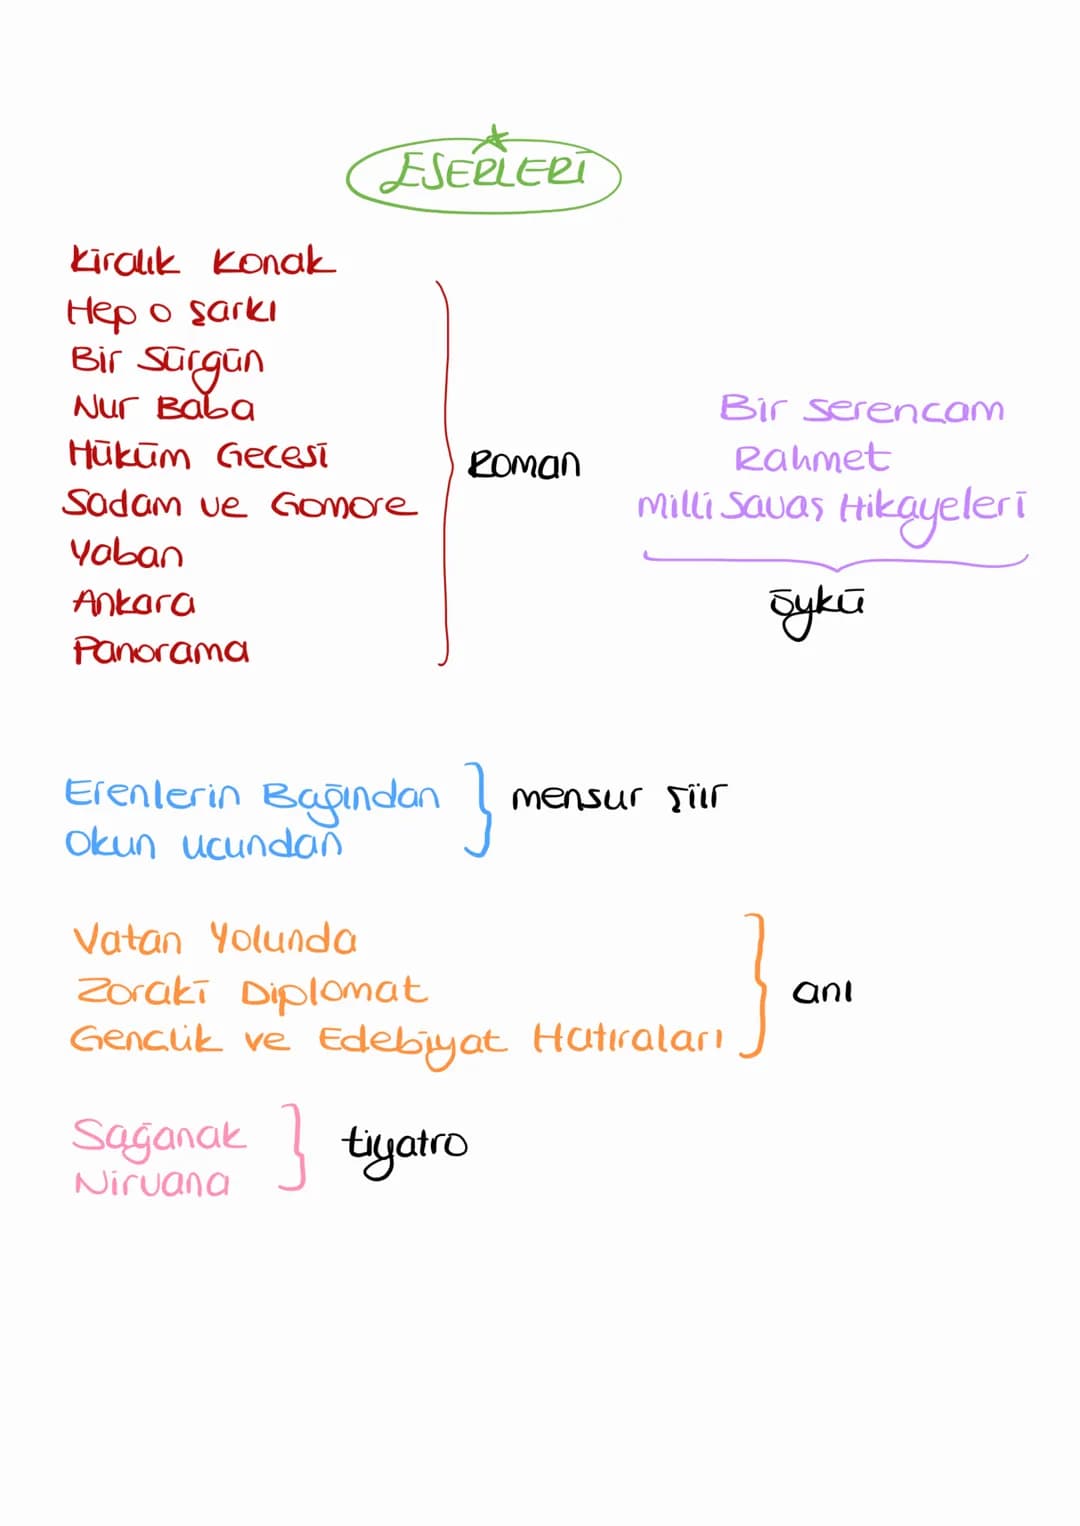 ESERLERİ
Kiralık Konak
Hep o şarkı
Bir Sürgün
Nur Baba
Hüküm Gecesi
Sadam ve Gomore
Yaban
Ankara
Panorama
Roman
Bir Serencam
Rahmet
Milli Savaş Hikayeleri
öykü
Erenlerin Bağından
Okun ucundan
mensur şiir
Vatan Yolunda
Zoraki Diplomat
Gençlik ve Edebiyat Hatıraları
anı
Sağanak
Nirvana
tiyatro